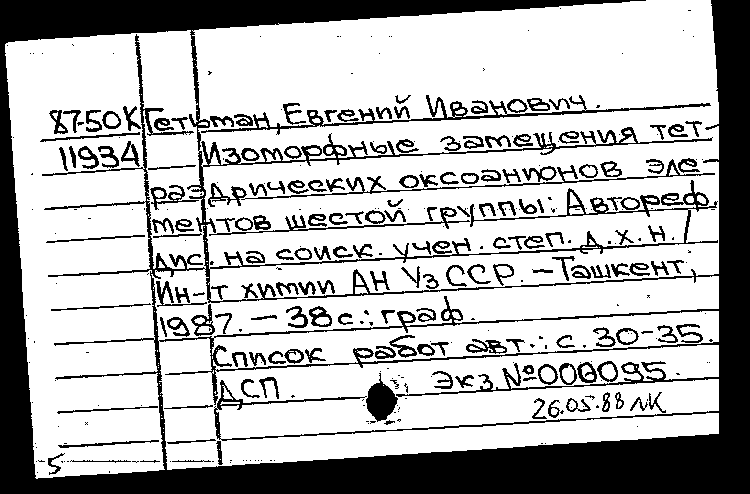 87-50К Гетьман, Евгений Иванович.
11934 Изоморфные замещения тет-
раэдрических оксоанионов эле-
ментов шестой группы: Автореф.
дис. на соиск. учен. степ. д.х.н. /
Ин-т химии АН УзССР. - Ташкент,
1987. - 38 с.: граф.
Список работ авт.: с. 30-35.
ДСП. Экз. №000095.
26.05.88 ЛК
5